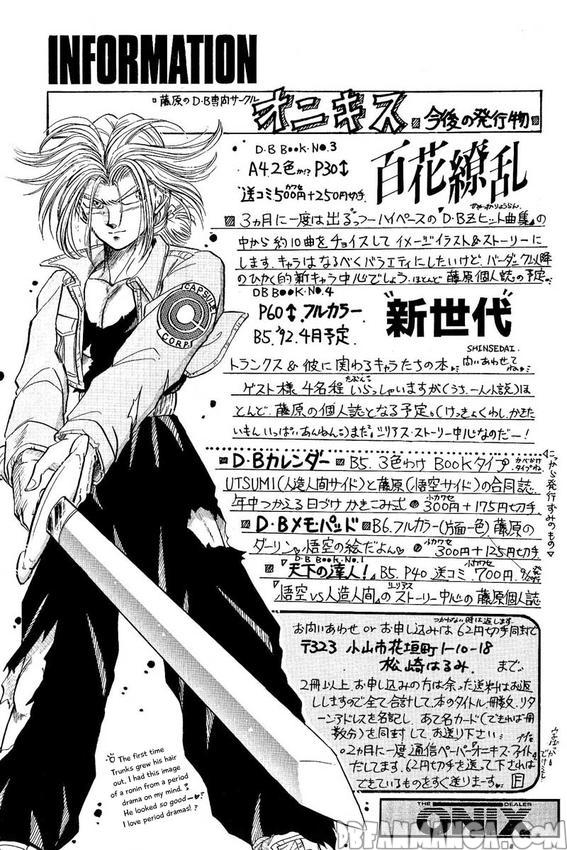 INFORMATION
□藤原のD・B専向サークル
オニキス 今後の発行物
D・B BOOK・NO.3
A4 2色か!? P30↕
送コミ500円+250円切手
百花繚乱
ひゃっかりょうらん
3ヵ月に一度は出るっつーハイペースの『D・BZヒット曲集』の
中から約10曲をチョイスしてイメージイラスト&ストーリーに
します。キャラはなるべくバラエティにしたいけど、バーダック以降
のひかく的新キャラ中心でしょう。ほとんど藤原個人誌の予定。
DB BOOK・NO.4
P60↕ フルカラー
B5.'92.4月予定
"新世代"
SHINSEDAI.
トランクス&彼に関わるキャラたちの本
向いあわせで
ゲスト様4名程いらっしゃいますが(うち、一人小説)ほ
とんど、藤原の個人誌となる予定。(けっきょくわし、かきた
いもんいっぱいあんねんこ)まだシリアス・ストーリー中心なのだー!
にゃから発行ずみのもの
D・Bカレンダー B5.3色わけ BOOKタイプ
UTSUMI(人造人間サイド)と藤原(悟空サイド)の合同誌
年中つかえる日づけかきこみ式 300円+175円切手
D・Bメモパッド B6.フルカラー(片面一色)藤原の
ダーリン 悟空の絵だよん 300円+125円切手
D・B BOOK・NO.1
『天下の達人!』B5.P40 送コミ700円
シリアス
『悟空VS人造人間』のストーリー中心の藤原個人誌
お向いあわせ or お申し込みは62円切手同封で
〒323 小山市花垣町1-10-18
松崎はるみ まで
2冊以上、お申し込みの方は余った送料はお返
ししますので全て合計して、本のタイトル・冊数、リタ
ーンアドレスを名記し、あて名カード(できれば冊
数分)を同封してお送り下さい。
○2カ月に一度通信ペーパー『オニキス・ナイト』
だしてます。62円切手を送って下されば
できているものをすぐ送ります。
CAPSULE
CORPS
The first time
Trunks grew his hair
out, I had this image
of a ronin from a period
drama on my mind.
He looked so good—
I love period dramas!
THE DEALER
ONIX
DBFANMANGA.COM